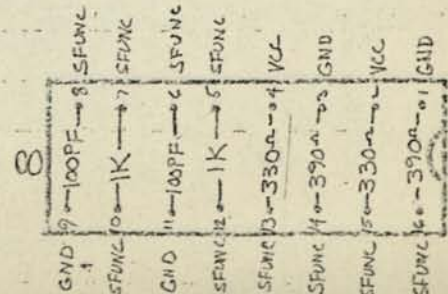 8
GND 9 100PF 8 SFUNC
SFUNC 10 1K 7 SFUNC
GND 11 100PF 6 SFUNC
SFUNC 12 1K 5 SFUNC
SFUNC 13 330Ω 4 VCC
SFUNC 14 390Ω 3 GND
SFUNC 15 330Ω 2 VCC
SFUNC 16 390Ω 1 GND